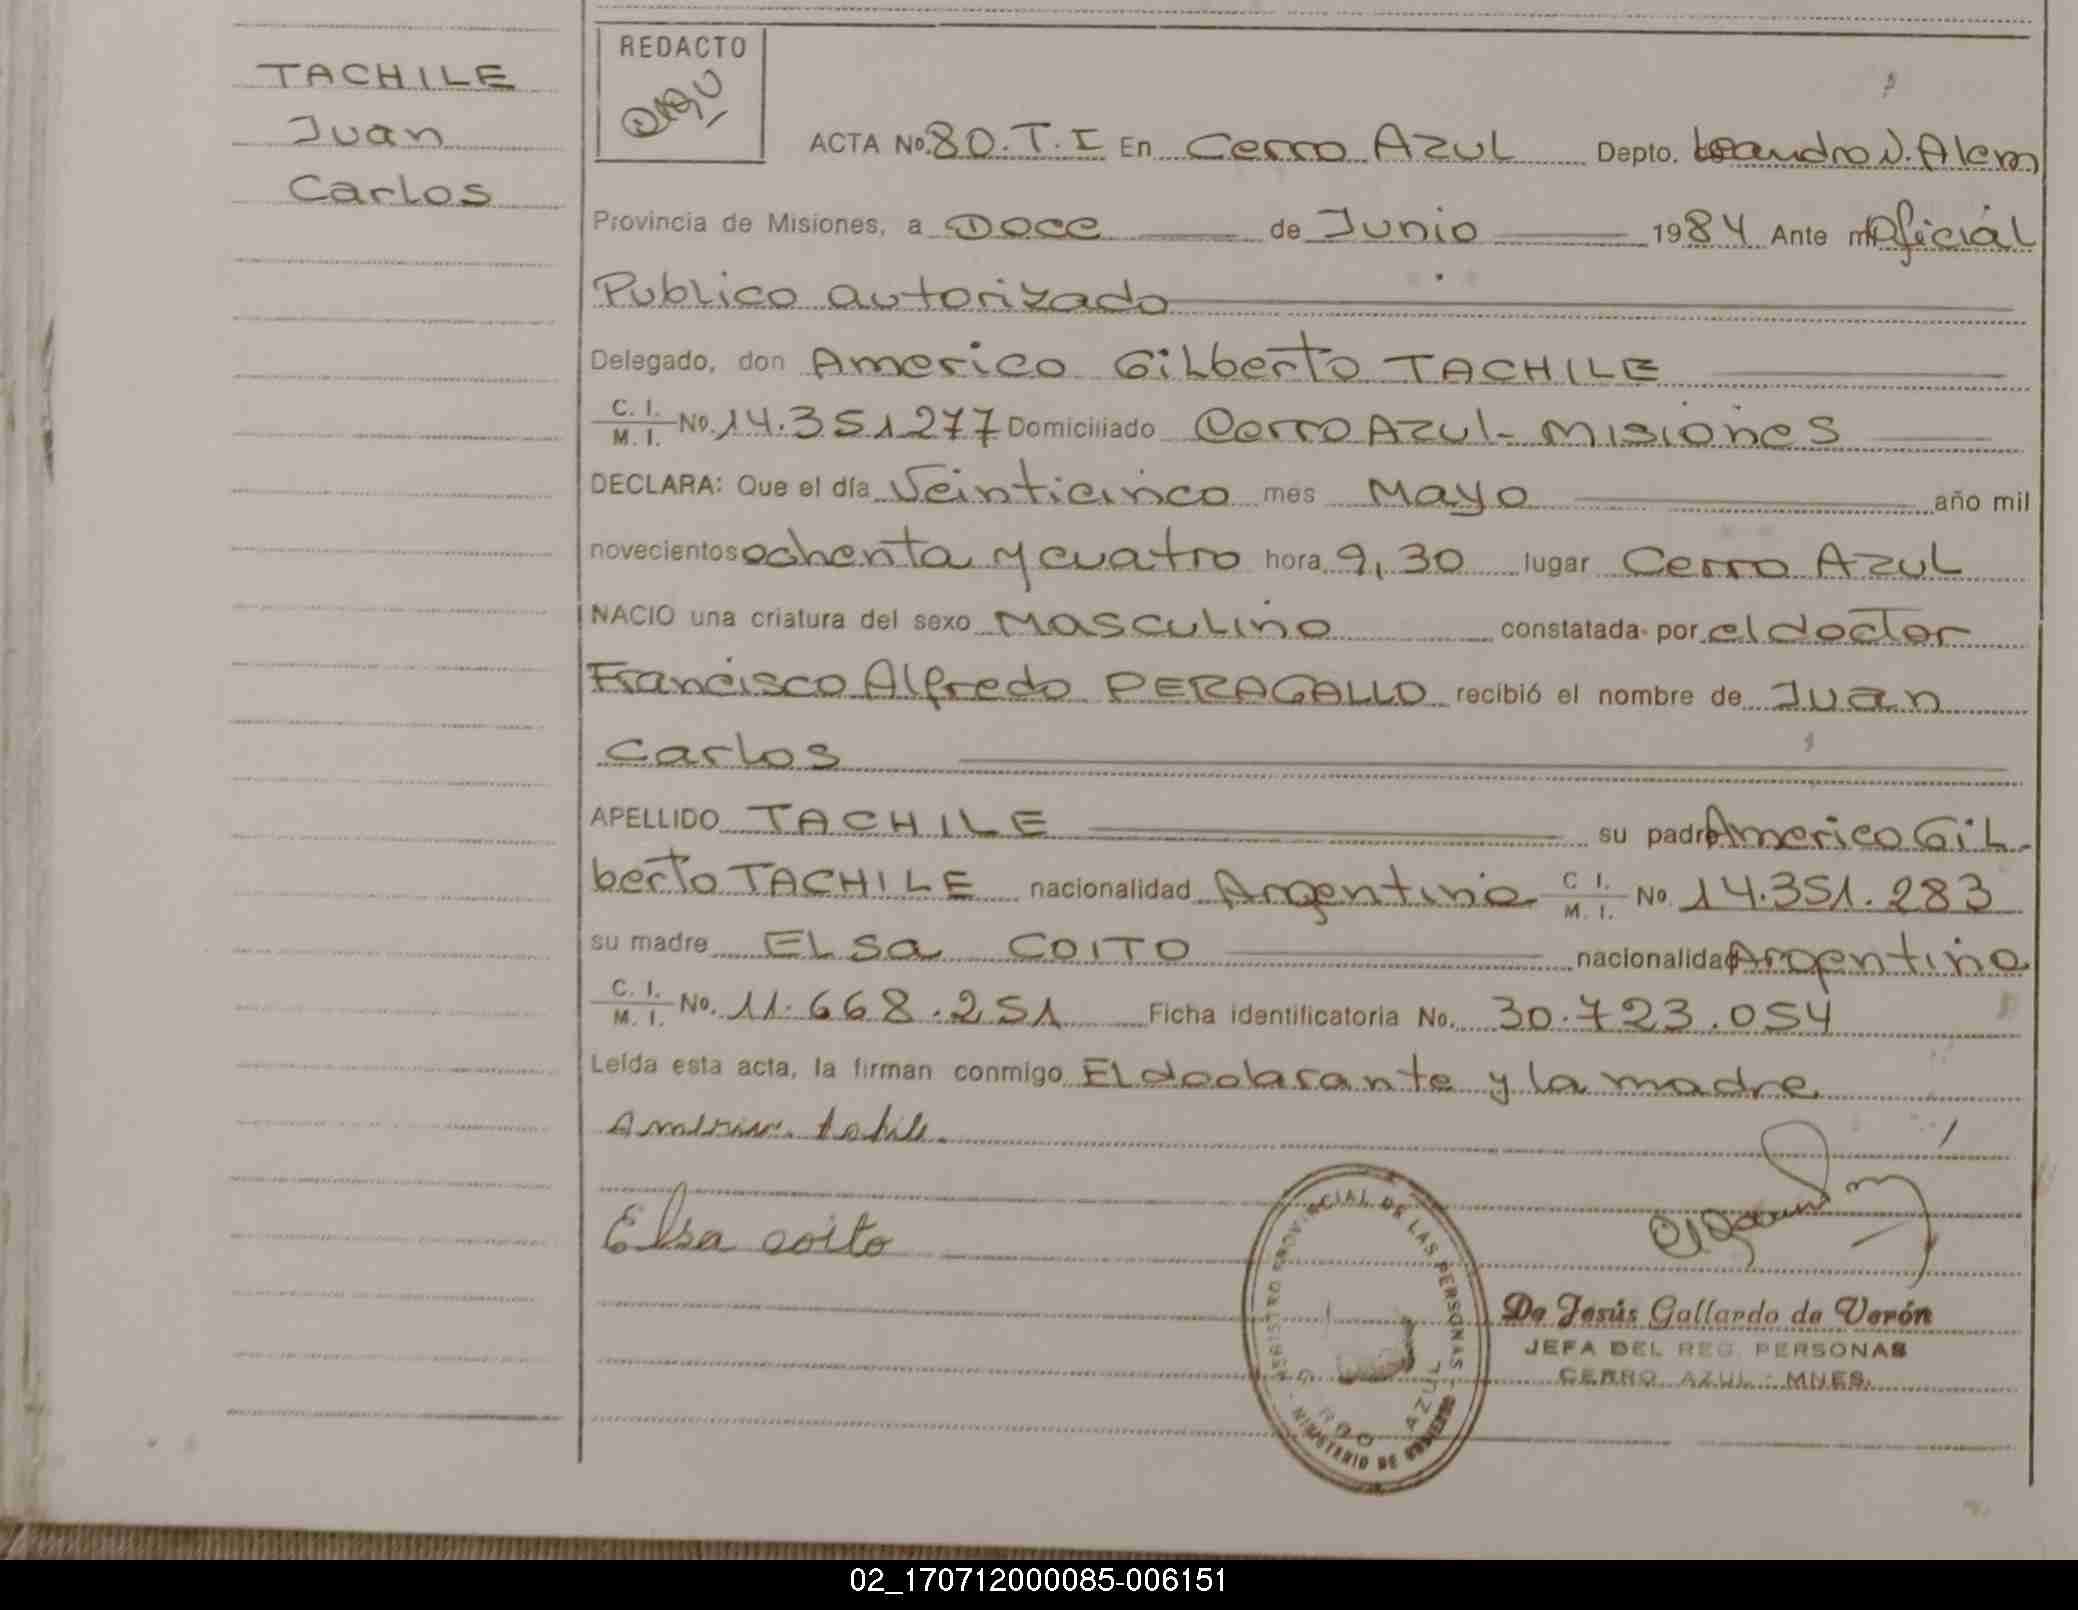 TACHILE
Juan
Carlos
REDACTO
ACTA No. 80. T. I En Cerro Azul Depto. Leandro N. Alem
Provincia de Misiones, a Doce de Junio 1984 Ante mi Oficial
Publico autorizado
Delegado, don Americo Gilberto TACHILE
C. I. / M. I. No. 14.351277 Domiciliado Cerro Azul - Misiones
DECLARA: Que el día Veinticinco mes Mayo año mil
novecientos ochenta y cuatro hora 9,30 lugar Cerro Azul
NACIO una criatura del sexo Masculino constatada por el doctor
Francisco Alfredo PERAGALLO recibió el nombre de Juan
Carlos
APELLIDO TACHILE su padre Americo Gil-
berto TACHILE nacionalidad Argentina C I. / M. I. No. 14.351.283
su madre ELSa COITO nacionalidad Argentina
C. I. / M. I. No. 11.668.251 Ficha identificatoria No. 30.723.054
Leída esta acta, la firman conmigo El declarante y la madre
Elsa coito
REGISTRO PROVINCIAL DE LAS PERSONAS
CERRO AZUL
MINISTERIO DE GOBIERNO
De Jesús Gallardo de Verón
JEFA DEL REG. PERSONAS
CERRO AZUL - MNES.
02_170712000085-006151